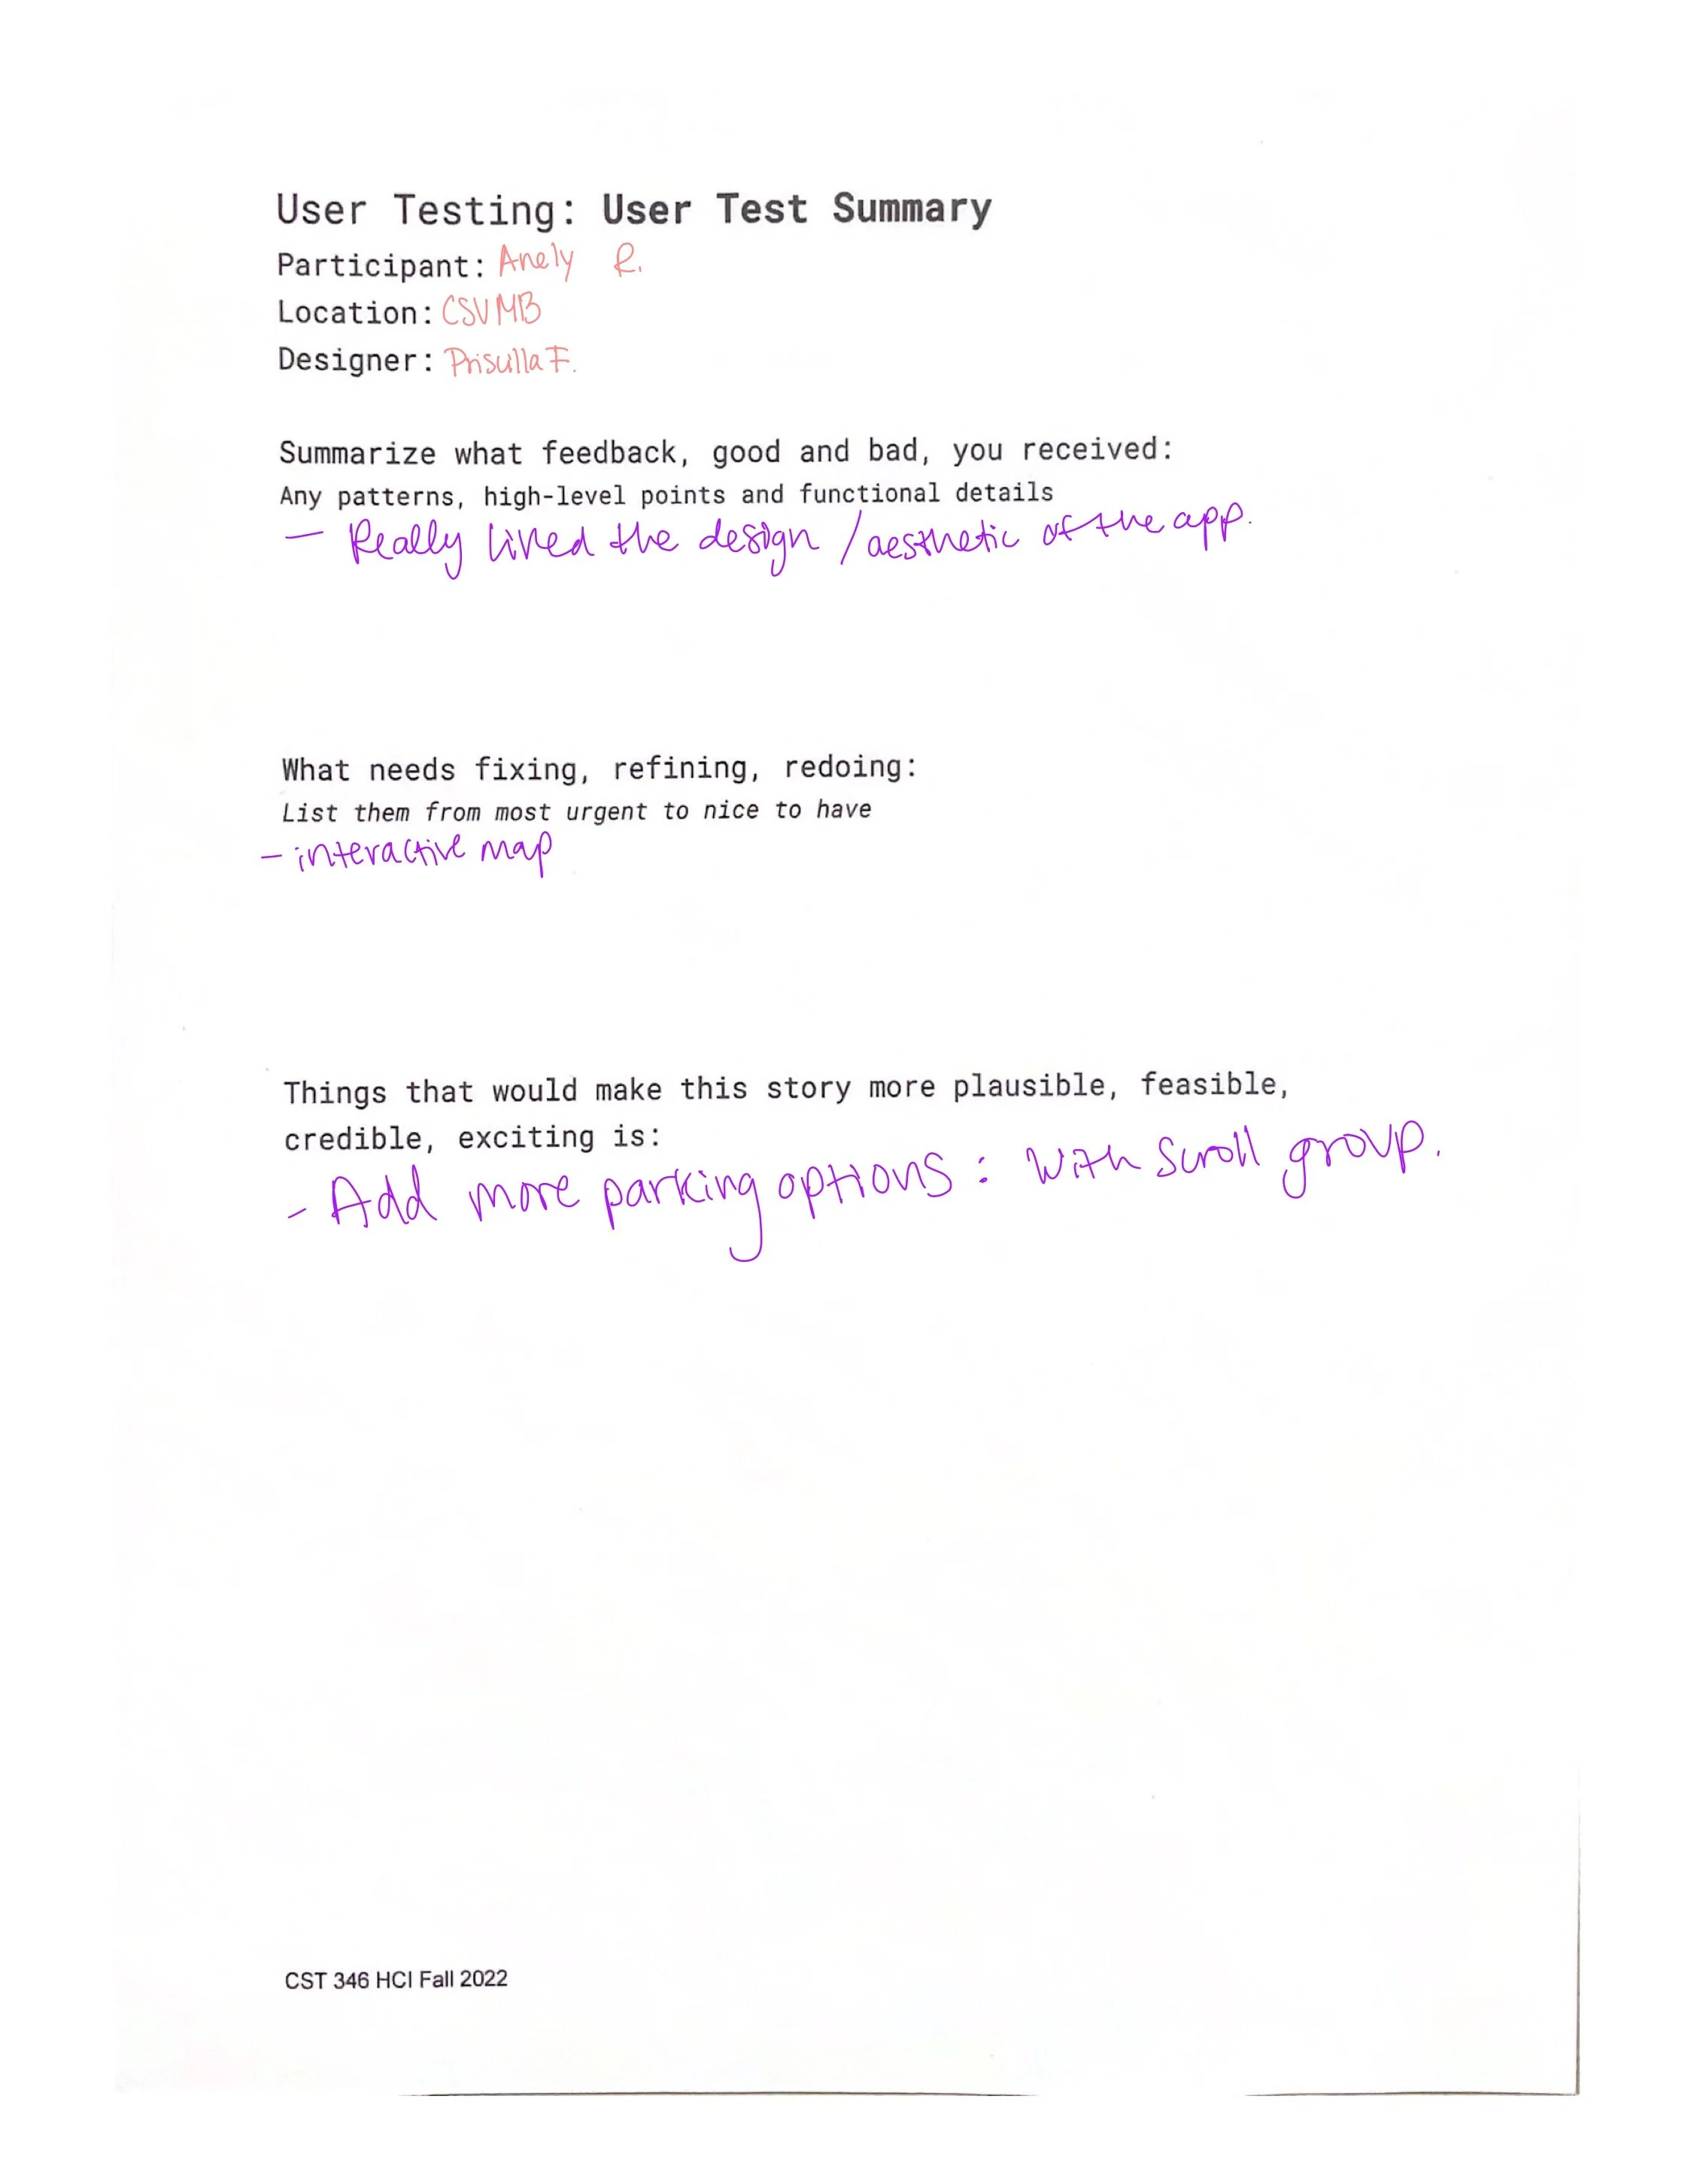 User Testing: User Test Summary
Participant: Anely R.
Location: CSUMB
Designer: Priscilla F.
Summarize what feedback, good and bad, you received:
Any patterns, high-level points and functional details
- Really liked the design / aesthetic of the app.
What needs fixing, refining, redoing:
List them from most urgent to nice to have
- interactive map
Things that would make this story more plausible, feasible,
credible, exciting is:
- Add more parking options: With scroll group.
CST 346 HCI Fall 2022